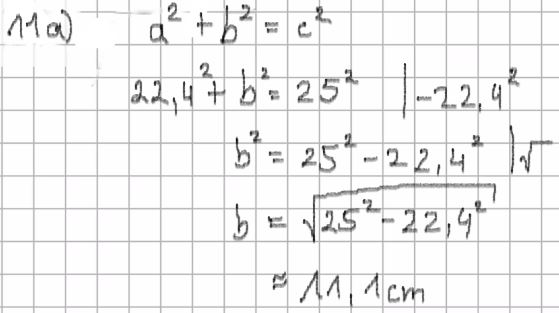 11a) a² + b² = c²
22,4² + b² = 25² |-22,4²
b² = 25² - 22,4² |√
b = √25² - 22,4²
≈ 11,1cm